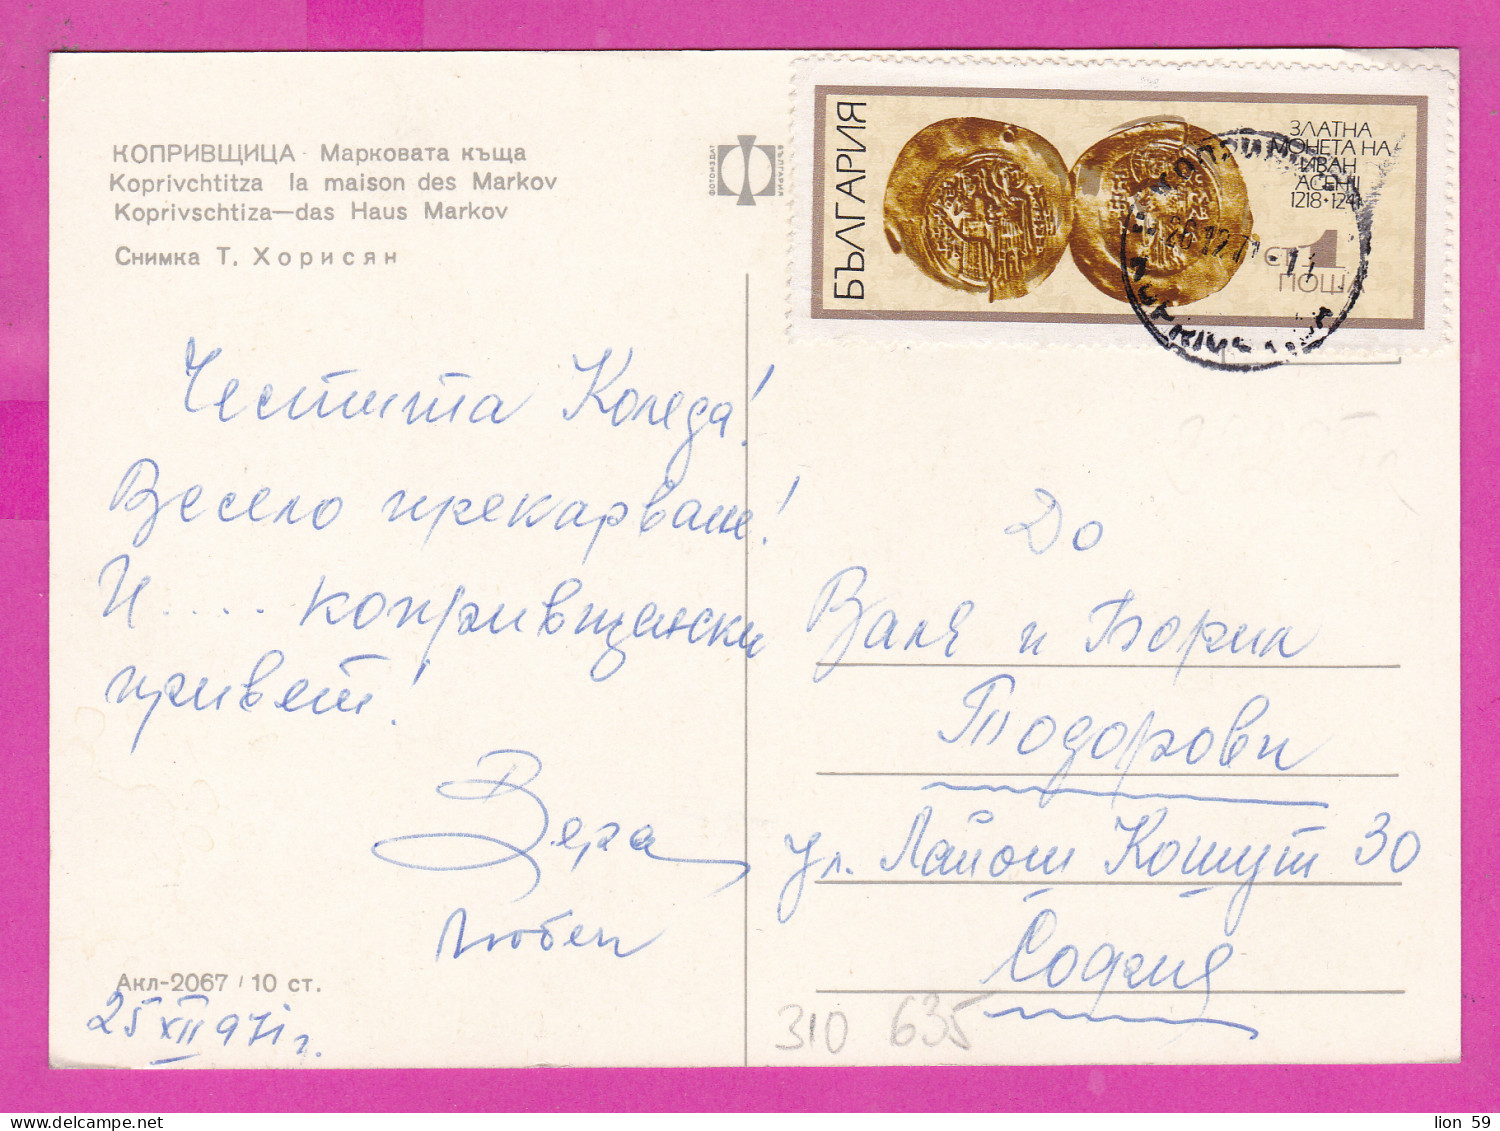 КОПРИВЩИЦА - Марковата къща
Koprivchtitza la maison des Markov
Koprivschtiza—das Haus Markov
Снимка Т. Хорисян
ФОТОИЗДАТ
БЪЛГАРИЯ
БЪЛГАРИЯ
ЗЛАТНА
МОНЕТА НА
ИВАН
АСЕН II
1218·1241
СТ 1
ПОЩА
26.12.71-11
Честита Коледа!
Весело прекарване!
И.... копривщенски
привет!
Вера
Любен
25 XII 971 г.
Акл-2067 / 10 ст.
До
Валя и Борил
Тодорови
ул. Лайош Кошут 30
София
310 635
lion 59